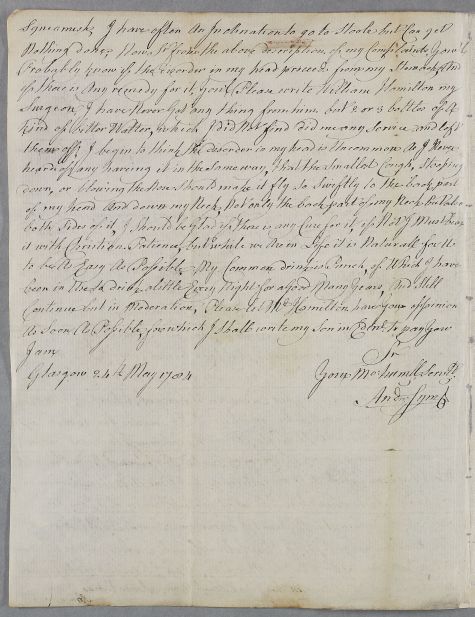 Squeamish, I have often An Inclination to go to Stoole but Can get
Nothing done, Now Sr from the above description of my Complaints you'l
Probably know if the disorder in my head proceeds from my Stomach, And
if there is Any remedy for it, you'l Please write William Hamilton my
Surgeon, I have Never Got any thing from him but 2 or 3 bottles of A
Kind of bitter Watter, which I did Not find did me any Service and left
them off, I begin to think the disorder in my head is Uncommon As I Never
heard of any having it in the same way, that the Smallest Cough, Stooping
down, or blowing the Nose Should make it fly so Swiftly to the back part
of my head And down my Neck, Not only the back part of my Neck but also
both Sides of it, I should be Glad if there is any Cure for it, if Not I Must bear
it with Christian Patience, but while we Are in Life it is Naturall for Us
to be As Easy As Possible. My Common drink is Punch, of Which I have
been in the Use to drink a little Every Night for a Good Many Years, And Still
Continue but in Moderation, Please let Mr Hamilton have your oppinion
As Soon As Possible, for which I shall write my son in Edinr. to pay you
I am
Sr
Glasgow 24th May 1784 Your Most humll Servt
Andw Syme